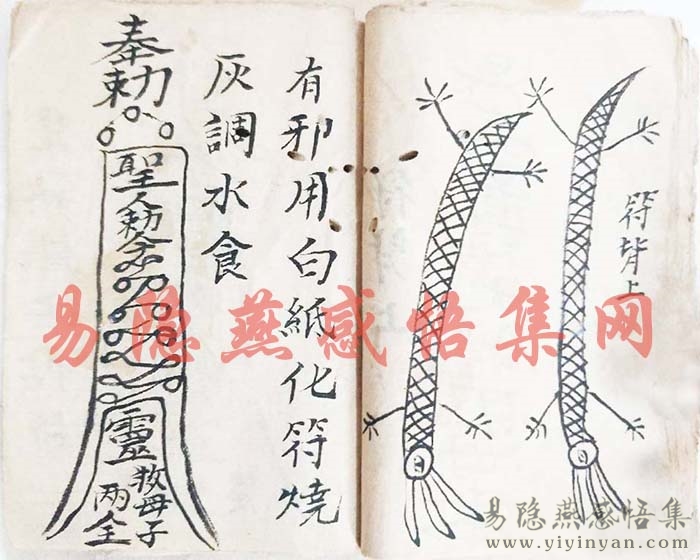 符背上
有邪用白紙化符燒
灰調水食
奉勅
聖人勅令
靈
救母子
兩全
易隐燕感悟集网
易隐燕感悟集
www.yiyinyan.com